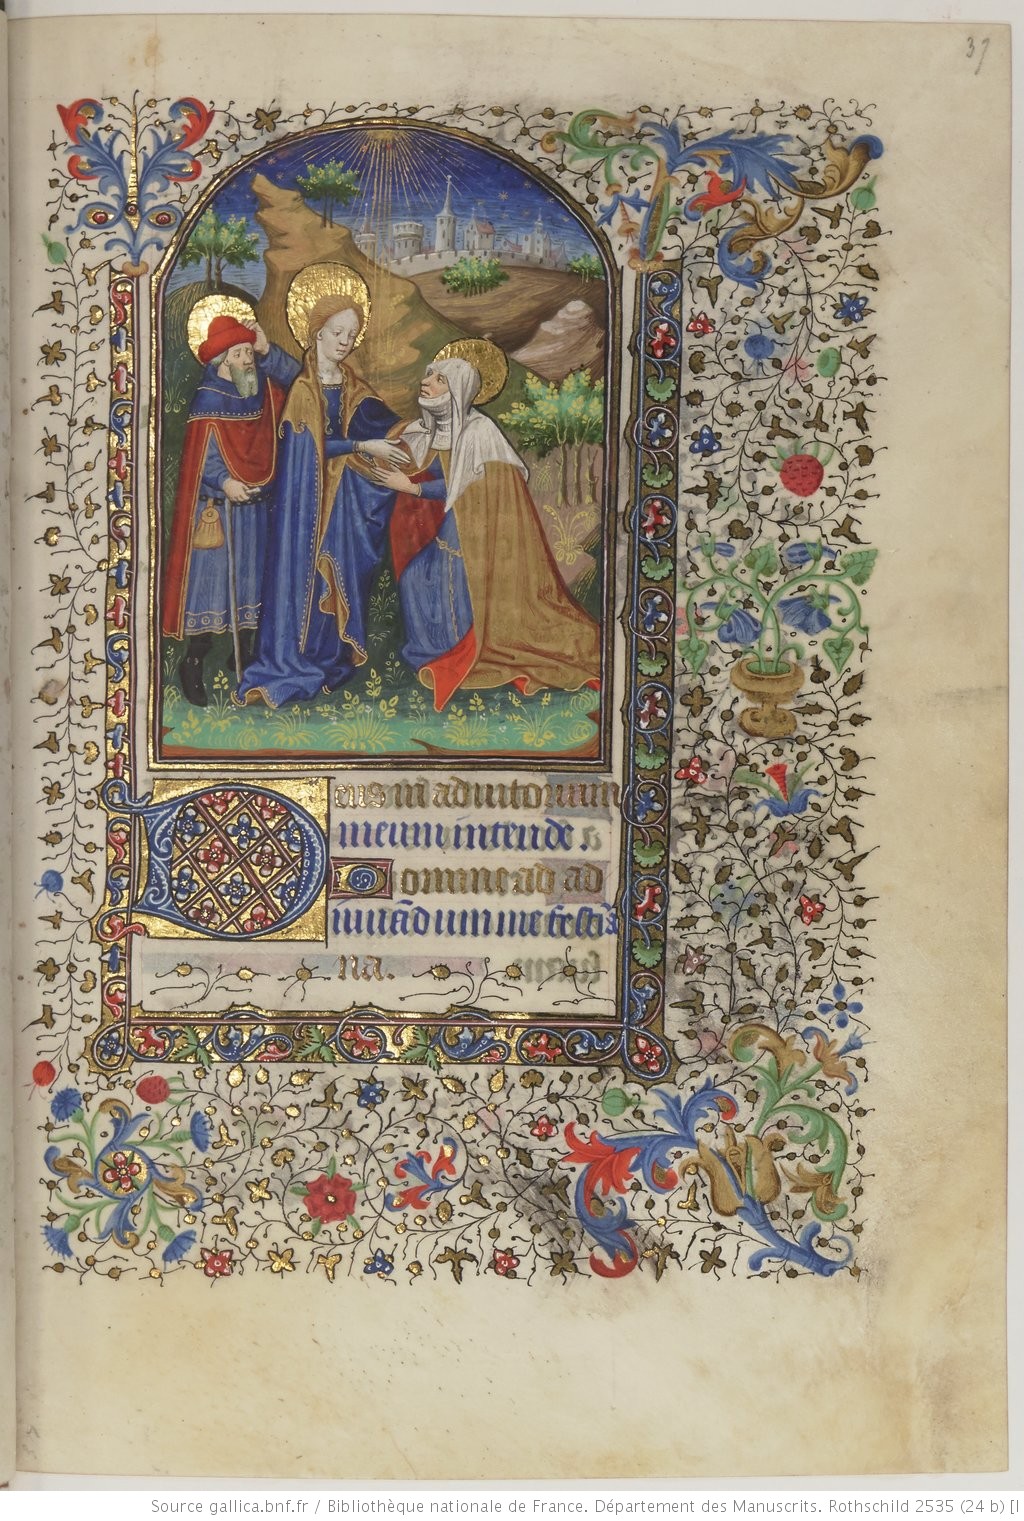 37
Deus in adiutorium
meum intende
Domine ad ad
iuuandum me festi
na.
Source gallica.bnf.fr / Bibliothèque nationale de France. Département des Manuscrits. Rothschild 2535 (24 b) [I